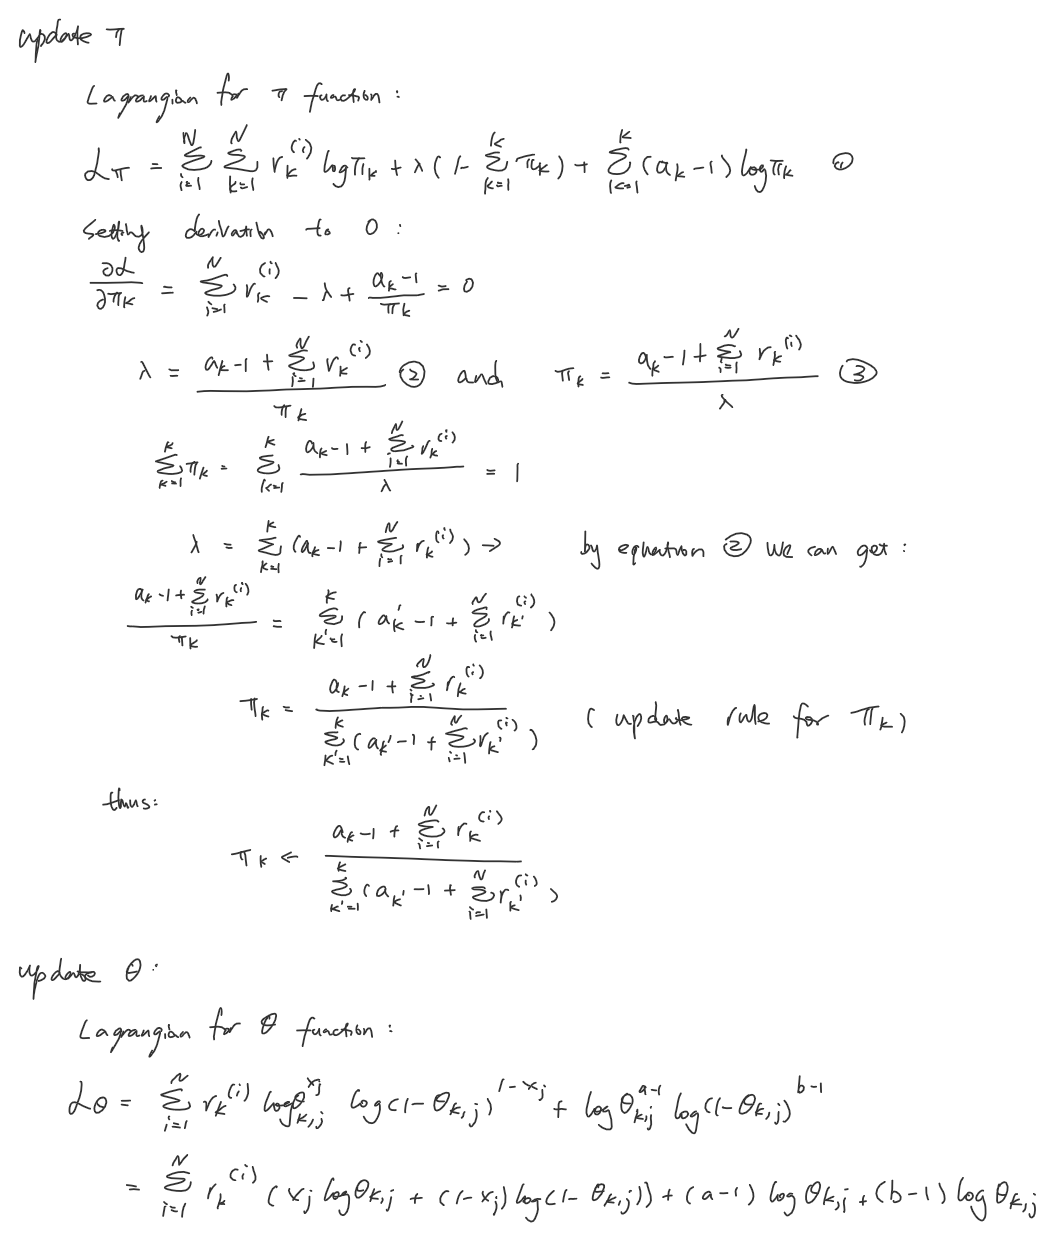 update π
Lagrangian for π function :
ℒ_π = Σ_{i=1}^{N} Σ_{k=1}^{N} r_k^{(i)} log π_k + λ ( 1 - Σ_{k=1}^{K} π_k ) + Σ_{k=1}^{K} (a_k - 1) log π_k ①
Setting derivation to 0 :
∂ℒ/∂π_k = Σ_{i=1}^{N} r_k^{(i)} - λ + (a_k - 1)/π_k = 0
λ = (a_k - 1 + Σ_{i=1}^{N} r_k^{(i)})/π_k ② and π_k = (a_k - 1 + Σ_{i=1}^{N} r_k^{(i)})/λ ③
Σ_{k=1}^{K} π_k = Σ_{k=1}^{K} (a_k - 1 + Σ_{i=1}^{N} r_k^{(i)})/λ = 1
λ = Σ_{k=1}^{K} (a_k - 1 + Σ_{i=1}^{N} r_k^{(i)}) → by equation ② we can get :
(a_k - 1 + Σ_{i=1}^{N} r_k^{(i)})/π_k = Σ_{k'=1}^{K} ( a_k' - 1 + Σ_{i=1}^{N} r_{k'}^{(i)} )
π_k = (a_k - 1 + Σ_{i=1}^{N} r_k^{(i)})/(Σ_{k'=1}^{K} (a_{k'} - 1 + Σ_{i=1}^{N} r_{k'}^{(i)})) ( update rule for π_k )
thus:
π_k ← (a_k - 1 + Σ_{i=1}^{N} r_k^{(i)})/(Σ_{k'=1}^{K} (a_{k'} - 1 + Σ_{i=1}^{N} r_{k'}^{(i)}))
update θ :
Lagrangian for θ function :
ℒ_θ = Σ_{i=1}^{N} r_k^{(i)} log θ_{k,j}^{x_j} log (1 - θ_{k,j})^{1 - x_j} + log θ_{k,j}^{a-1} log (1 - θ_{k,j})^{b-1}
= Σ_{i=1}^{N} r_k^{(i)} (x_j log θ_{k,j} + (1 - x_j) log (1 - θ_{k,j})) + (a-1) log θ_{k,j} + (b-1) log θ_{k,j}